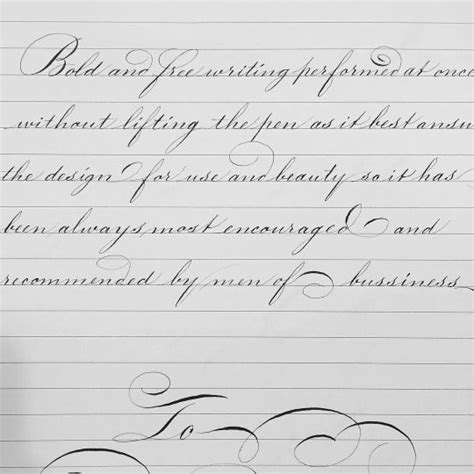 Bold and free writing performed at once
without lifting the pen as it best answ
the design for use and beauty so it has
been always most encouraged and
recommended by men of bussiness
To